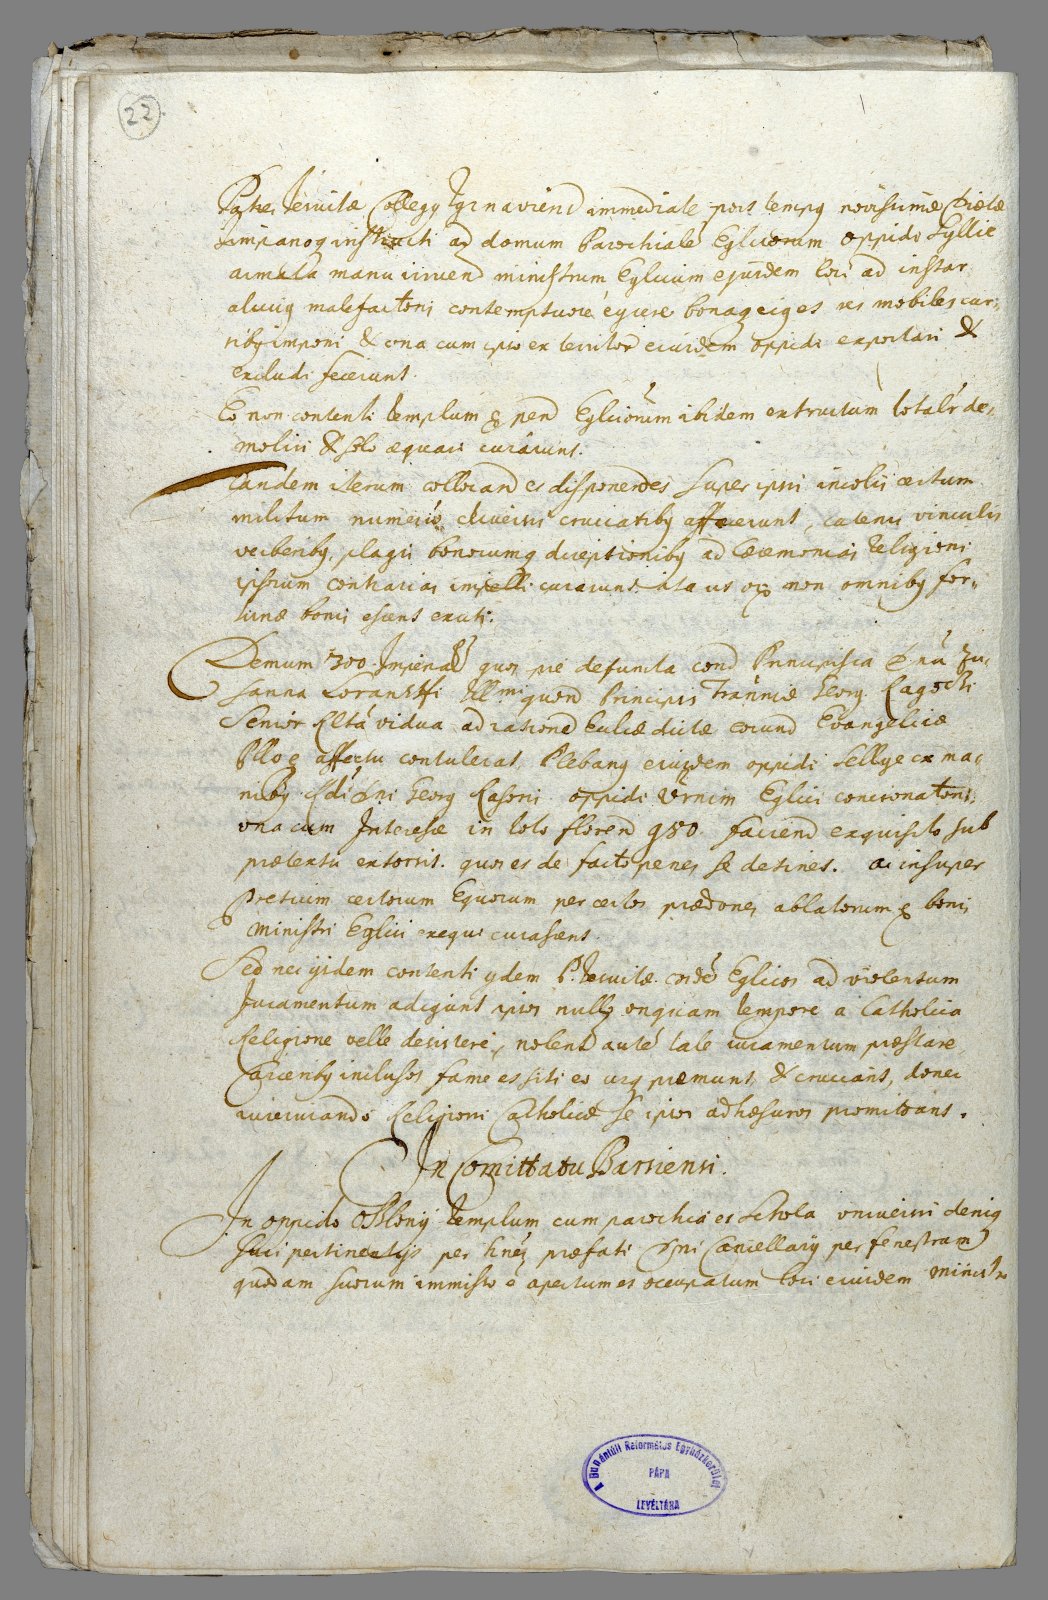 22.
Patres Jesuitæ Collegÿ Tyrnaviens immediate post tempus novissimæ Diætæ
ad domum Parochialē Eglicorum oppido Syllie
armata manu irruend ministrum Eglicum ejusdem loci ad instar
alicuius malefactoris contemptuose egere bona eiges res mobiles cur:
ribus imponi & una cum ipso ex territor eiusdem oppidi exportari &
excludi fecerunt.
Eo non contenti templum pend Eglicorum ibidem extructum totalr de:
moliri & solo æquari curarunt.
Tandem iterum collocand et disponendes super ipsis incolis certum
militum numerū, diversis cruciatibus affecerunt, catenis vinculis
verberibus, plagis bonorumq direptionibus ad Cæremonias Religioni
ipsorum contrarias impelli curarunt. ita ut non omnibus for:
tunæ bonis essent exuti.
Demum 700. Imperial quos præ defuncta cond Principissa Dna Zu:
sanna Loranttfi Ill.mi quond Principis Tranniæ Georg. Ragoczi
Senior Relta vidua ad rationd Eccliæ dictæ eorund Evangelicæ
affectu contulerat, Plebanus eiusdem oppidi Sellye ex ma:
nibus Rdi Dni Georg oppidi Eglici concionatoris,
una cum Interesse in toto florend 950. faciend exquisito sub
prætextu extorsit. quos et de facto penes se detinet. ac insuper
Pretium certorum Equorum per certos prædones ablatorum bonis
ministri Eglici exequi curassent.
Sed nec ijdem contenti ÿdem P. Jesuitæ Eglicos ad violentum
Juramentum adigunt ipsos nullo unquam tempore a Catholica
Religione velle desistere, nolend autē tale iuramentum præstare
Carceribus inclusos fame et siti eo usq premunt & cruciant, donec
iurando Religioni Catholicæ se ipsos adhæsuros promittant.
In Comittatu Barsiensi.
In oppido Oszlony templum cum parochia et schola universis deniq
suis pertinentijs per præfati Dni Cancellarÿ per fenestram
quodam suorum immisso apertum et occupatum loci eiusdem ministr
A Dunántúli Református Egyházkerület
PÁPA
LEVÉLTÁRA